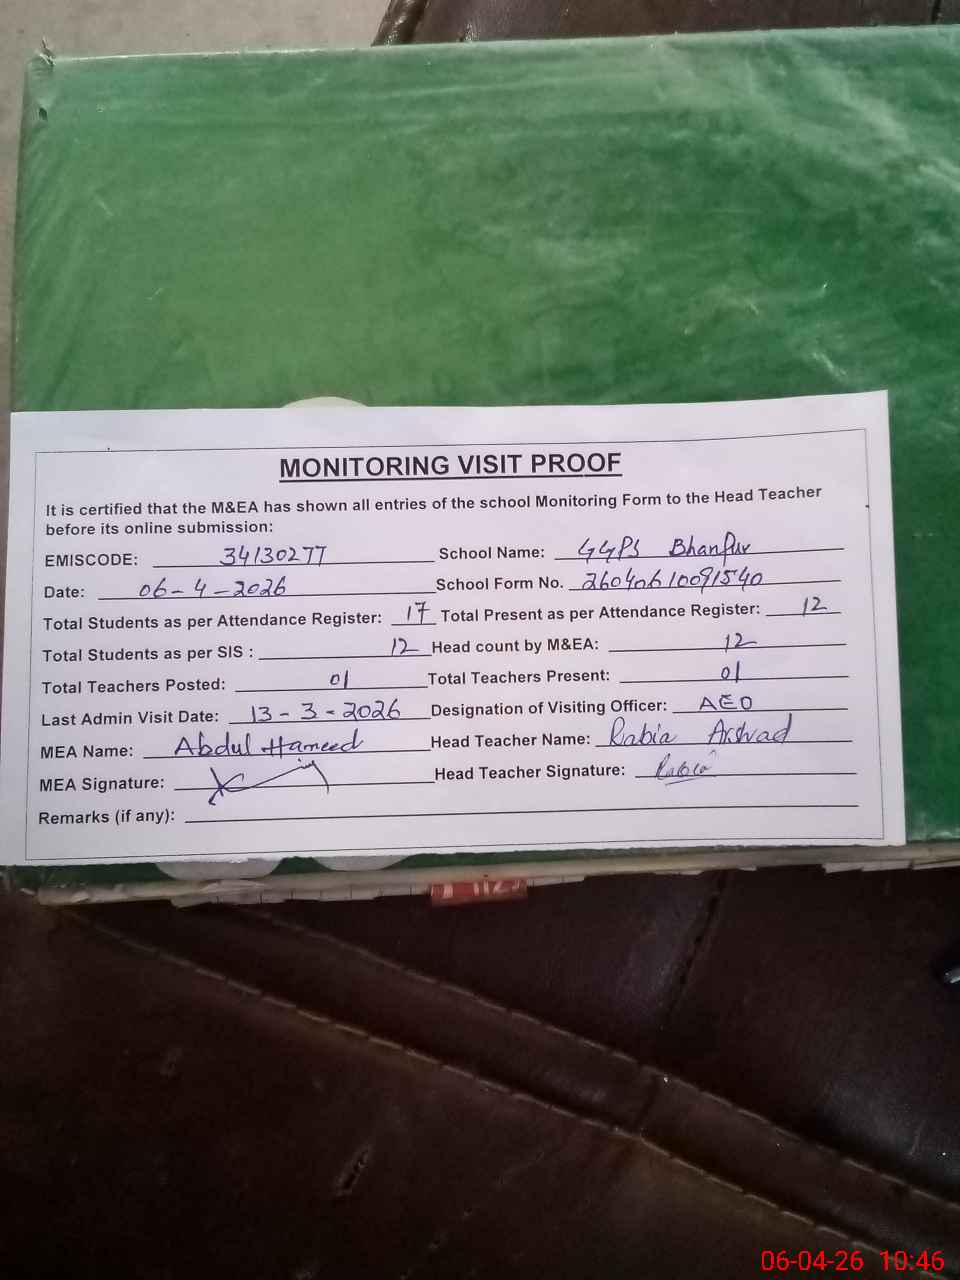 MONITORING VISIT PROOF
It is certified that the M&EA has shown all entries of the school Monitoring Form to the Head Teacher
before its online submission:
EMISCODE: 34130277 School Name: GGPS Bhanpur
Date: 06-4-2026 School Form No. 26040610091540
Total Students as per Attendance Register: 17 Total Present as per Attendance Register: 12
Total Students as per SIS : 12 Head count by M&EA: 12
Total Teachers Posted: 01 Total Teachers Present: 01
Last Admin Visit Date: 13-3-2026 Designation of Visiting Officer: AEO
MEA Name: Abdul Hameed Head Teacher Name: Rabia Arshad
MEA Signature: Head Teacher Signature: Rabia
Remarks (if any):
06-04-26 10:46